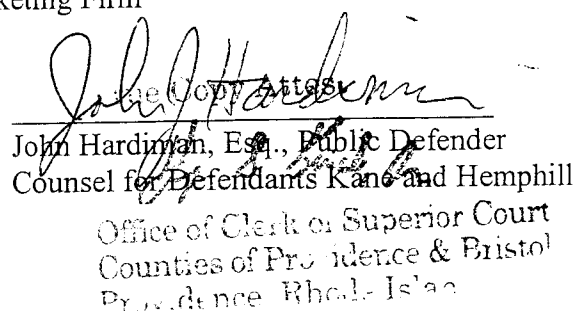 keting Firm
John J Hardiman
True Copy Attest
John Hardiman, Esq., Public Defender
Counsel for Defendants Kane and Hemphill
Office of Clerk of Superior Court
Counties of Providence & Bristol
Providence, Rhode Islan